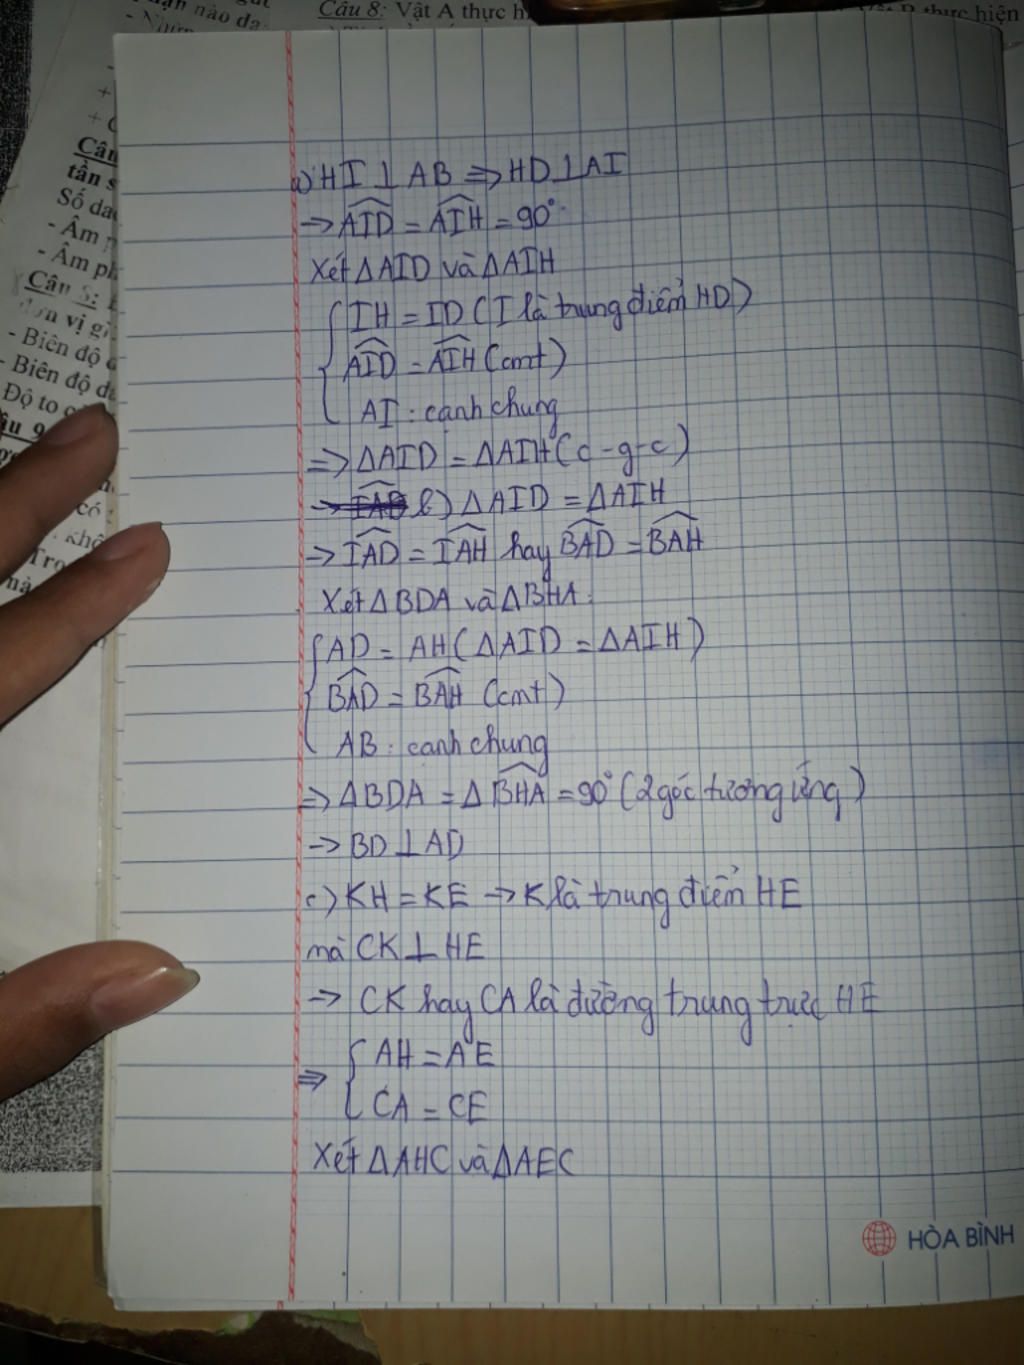 Câu 8: Vật A thực h
thực hiện
Câu
tần s
Số da
- Âm
- Âm ph
Câu 5:
đơn vị gì
- Biên độ
- Biên độ d
Độ to
a) HI ⊥ AB => HD ⊥ AI
-> AID = AIH = 90°
Xét ΔAID và ΔAIH
IH = ID (I là trung điểm HD)
AID = AIH (cmt)
AI : cạnh chung
=> ΔAID = ΔAIH (c-g-c)
b) ΔAID = ΔAIH
=> IAD = IAH hay BAD = BAH
Xét ΔBDA và ΔBHA:
AD = AH (ΔAID = ΔAIH)
BAD = BAH (cmt)
AB : cạnh chung
=> ΔBDA = ΔBHA = 90° (2 góc tương ứng)
-> BD ⊥ AD
c) KH = KE -> K là trung điểm HE
mà CK ⊥ HE
-> CK hay CA là đường trung trực HE
=> AH = AE
CA = CE
Xét ΔAHC và ΔAEC
HÒA BÌNH